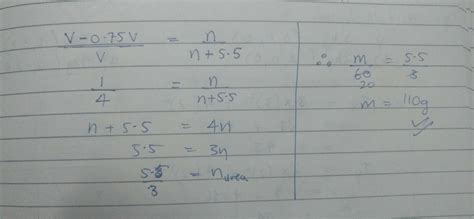 (V-0.75V)/V = n/(n+5.5)
1/4 = n/(n+5.5)
n+5.5 = 4n
5.5 = 3n
5.5/3 = n urea
∴ m/60 = 5.5/3
20
m = 110g